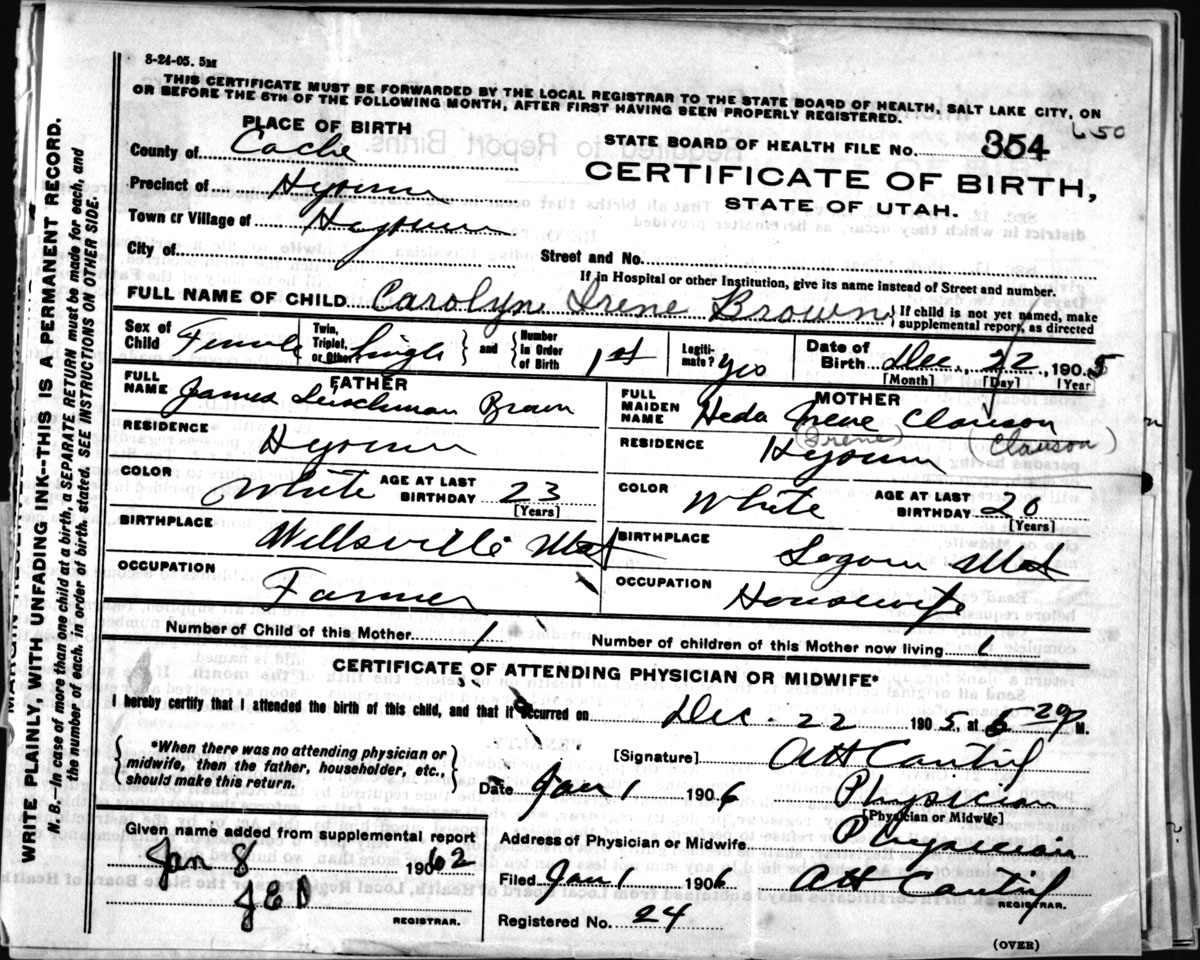 8-24-05. 5M
THIS CERTIFICATE MUST BE FORWARDED BY THE LOCAL REGISTRAR TO THE STATE BOARD OF HEALTH, SALT LAKE CITY, ON
OR BEFORE THE 5TH OF THE FOLLOWING MONTH, AFTER FIRST HAVING BEEN PROPERLY REGISTERED.
650
PLACE OF BIRTH
STATE BOARD OF HEALTH FILE No. 354
County of Cache
CERTIFICATE OF BIRTH,
Precinct of Hyrum
STATE OF UTAH.
Town or Village of Hyrum
City of
Street and No.
If in Hospital or other Institution, give its name instead of Street and number.
FULL NAME OF CHILD Carolyne Irene Brown } If child is not yet named, make supplemental report, as directed
Sex of Child Female Twin, Triplet, or Other Single } and { Number In Order of Birth 1st Legitimate? Yes Date of Birth Dec. 22, 1905
[Month] [Day] [Year]
FATHER
FULL NAME James Leischman Brown
MOTHER
FULL MAIDEN NAME Heda Irene Clauson
(Irene) (Clauson)
RESIDENCE Hyrum
RESIDENCE Hyrum
COLOR White AGE AT LAST BIRTHDAY 23 [Years]
COLOR White AGE AT LAST BIRTHDAY 20 [Years]
BIRTHPLACE Wellsville Utah
BIRTHPLACE Logan Utah
OCCUPATION Farmer
OCCUPATION Housewife
Number of Child of this Mother 1 Number of children of this Mother now living 1
CERTIFICATE OF ATTENDING PHYSICIAN OR MIDWIFE*
I hereby certify that I attended the birth of this child, and that it occurred on Dec. 22 1905, at 5 20 P M.
{ *When there was no attending physician or midwife, then the father, householder, etc., should make this return. }
[Signature] 
Date Jan 1 1906 Physician
[Physician or Midwife]
Given name added from supplemental report
Jan 8 19062
J E D
REGISTRAR.
Address of Physician or Midwife Physician
Filed Jan 1 1906
REGISTRAR.
Registered No. 24
(OVER)
WRITE PLAINLY, WITH UNFADING INK--THIS IS A PERMANENT RECORD.
N. B.--In case of more than one child at a birth, a SEPARATE RETURN must be made for each, and
the number of each, in order of birth, stated. SEE INSTRUCTIONS ON OTHER SIDE.